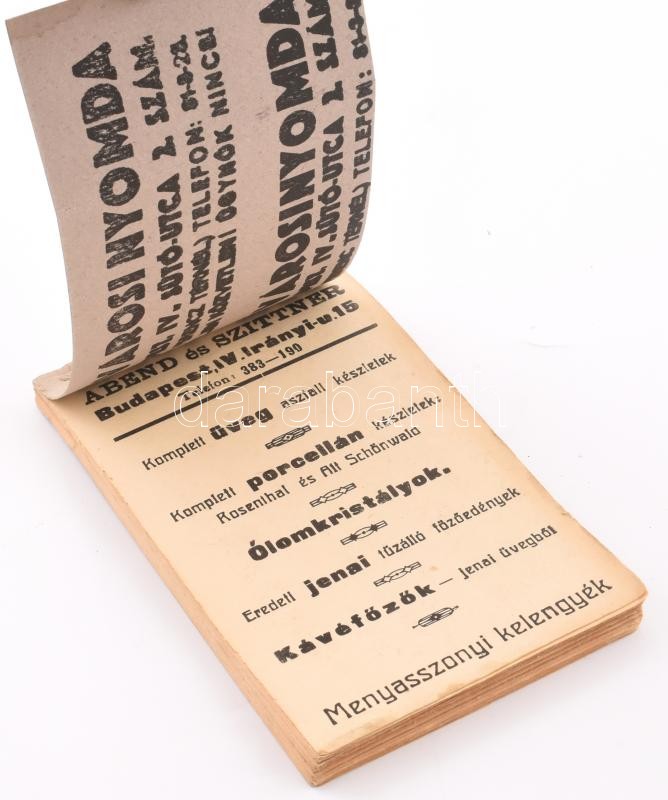 VAROSI NYOMDA
IV., SÜTŐ-UTCA 2. SZÁM.
TELEFON: 81-8-28.
ÜGYNÖK NINCS!
VAROSI NYOMDA
IV., SÜTŐ-UTCA 2. SZÁM
TELEFON:
ABEND és SZITTNER
Budapest, IV. Irányi-u. 15
Telefon: 383—190
Komplett üveg asztali készletek
Komplett porcellán készletek:
Rosenthal és Alt Schönwald
Ólomkristályok.
Eredeti jenai tűzálló főzőedények
Kávéfőzők — jenai üvegből
Menyasszonyi kelengyék
darabanth